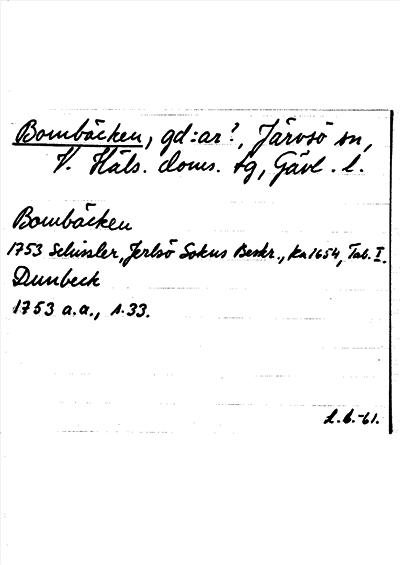 Bombäcken, gd:ar?, Järvsö sn,
V. Häls. doms. tg, Gävl. l.
Bombäcken
1753 Schissler, Jerlsö Sokns Beskr., Ka 1654, Tab. I.
Dunbeck
1753 a.a., s. 33.
L.b.-61.